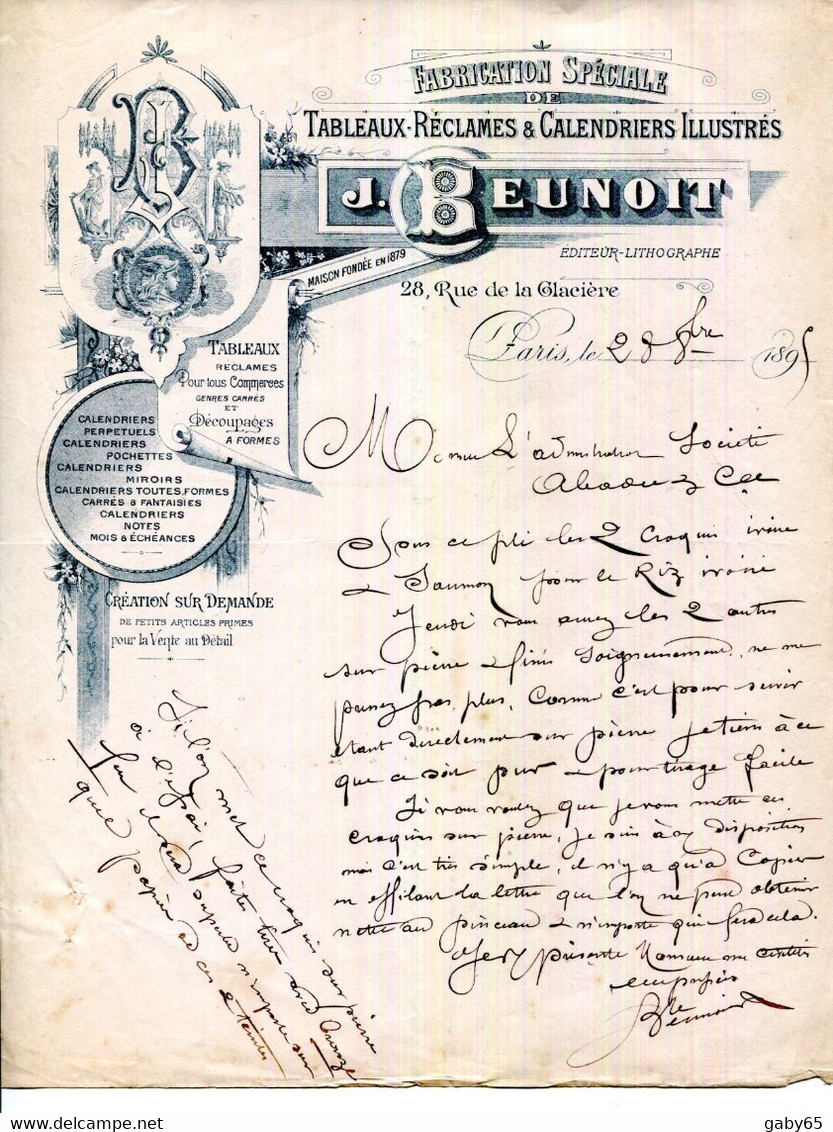 FABRICATION SPÉCIALE
DE
TABLEAUX-RÉCLAMES & CALENDRIERS ILLUSTRÉS
J. BEUNOIT
ÉDITEUR-LITHOGRAPHE
MAISON FONDÉE EN 1879
28, Rue de la Glacière
Paris, le 28 8bre 1895
B
TABLEAUX
RÉCLAMES
Pour tous Commerces
GENRES CARRÉS
ET
Découpages
A FORMES
CALENDRIERS
PERPETUELS
CALENDRIERS
POCHETTES
CALENDRIERS
MIROIRS
CALENDRIERS TOUTES FORMES
CARRÉS & FANTAISIES
CALENDRIERS
NOTES
MOIS & ÉCHÉANCES
CRÉATION SUR DEMANDE
DE PETITS ARTICLES PRIMES
pour la Vente au Détail
L'administration Société
Abadie & Cie
Sous ce pli les 2 croquis ivoire
& Saumon pour le Riz ivoire
Jeudi vous aurez les 2 autres
sur pierre & finis soigneusement, ne me
pressez pas plus, comme c'est pour servir
étant directement sur pierre je tiens à ce
que ce soit pur & pour tirage facile
Si vous voulez que je vous mette ces
croquis sur pierre, je suis à disposition
mais c'est très simple, il n'y a qu'à copier
en effilant la lettre que l'on ne peut obtenir
nette au pinceau & n'importe qui fera cela.
présente Monsieur mes
empressés
Beunoit
Si l'on met ce croquis sur pierre
à l'essai, faites tirer avec bronze
superbe n'importe sur
quel papier de ces 2 teintes
gaby65